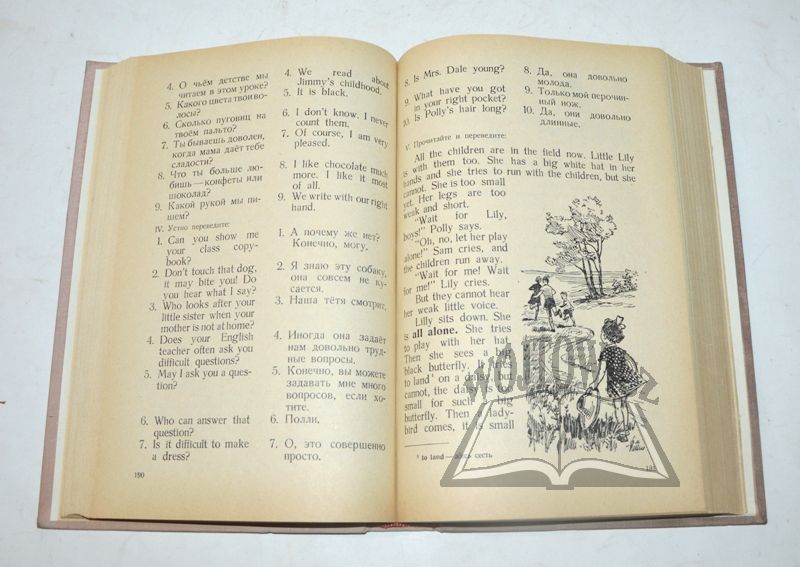 4. О чьём детстве мы
читаем в этом уроке?
5. Какого цвета твои во-
лосы?
6. Сколько пуговиц на
твоём пальто?
7. Ты бываешь доволен,
когда мама даёт тебе
сладости?
8. Что ты больше лю-
бишь — конфеты или
шоколад?
9. Какой рукой мы пи-
шем?
4. We read about
Jimmy's childhood.
5. It is black.
6. I don't know. I never
count them.
7. Of course, I am very
pleased.
8. I like chocolate much
more. I like it most
of all.
9. We write with our right
hand.
IV. Устно переведите:
1. Can you show me
your class copy-
book?
2. Don't touch that dog,
it may bite you! Do
you hear what I say?
3. Who looks after your
little sister when your
mother is not at home?
4. Does your English
teacher often ask you
difficult questions?
5. May I ask you a ques-
tion?
6. Who can answer that
question?
7. Is it difficult to make
a dress?
1. А почему же нет?
Конечно, могу.
2. Я знаю эту собаку,
она совсем не ку-
сается.
3. Наша тётя смотрит.
4. Иногда она задаёт
нам довольно труд-
ные вопросы.
5. Конечно, вы можете
задавать мне много
вопросов, если хо-
тите.
6. Полли.
7. О, это совершенно
просто.
190
8. Is Mrs. Dale young?
9. What have you got
in your right pocket?
10. Is Polly's hair long?
8. Да, она довольно
молода.
9. Только мой перочин-
ный нож.
10. Да, они довольно
длинные.
V. Прочитайте и переведите:
All the children are in the field now. Little Lily
is with them too. She has a big white hat in her
hands and she tries to run with the children, but she
cannot. She is too small
yet. Her legs are too
weak and short.
"Wait for Lily,
boys!" Polly says.
"Oh, no, let her play
alone!" Sam cries, and
the children run away.
"Wait for me! Wait
for me!" Lily cries.
But they cannot hear
her weak little voice.
Lilly sits down. She
is all alone. She tries
to play with her hat.
Then she sees a big
black butterfly. It tries
to land¹ on a daisy, but
cannot, the daisy is too
small for such a big
butterfly. Then a lady-
bird comes, it is small
¹ to land — здесь сесть